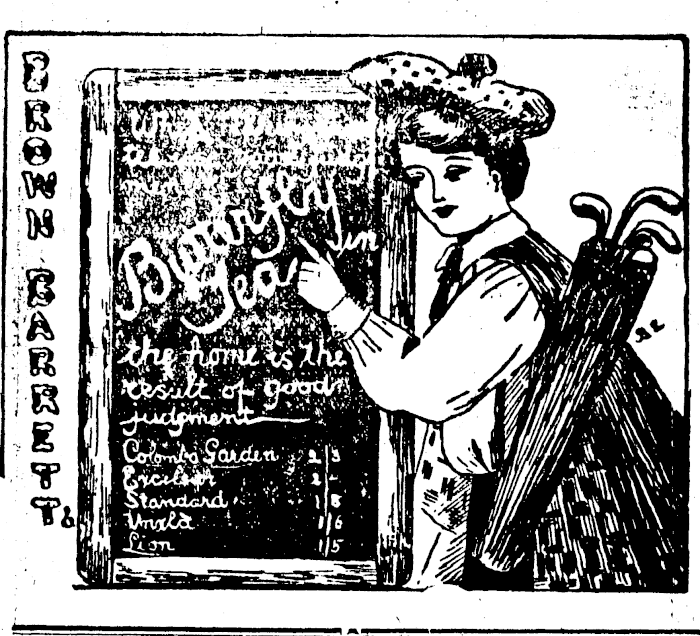 BROWN BARRETT &
Butterfly
Tea in
the home is the
result of good
judgment
Colombo Garden 2 3
Excelsior 2 -
Standard 1 8
Unxld 1 6
Lion 1 5